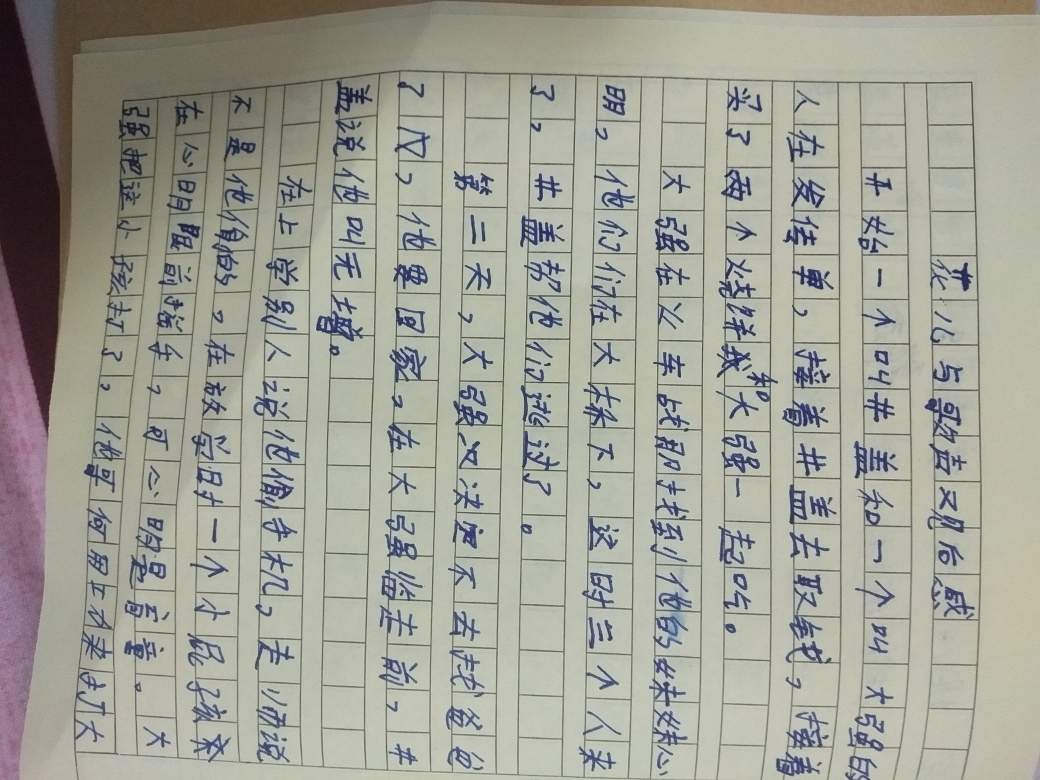 花儿与歌声观后感
开始一个叫井盖和一个叫大强的
人在发传单，接着井盖去取钱，接着
买了两个烧饼我和大强一起吃。
大强在火车战那找到他的妹妹心
明，他们们在大桥下，这时三个人来
了，井盖帮他们逃过了。
第二天，大强只决定不去找爸爸
了，他要回家。在大强临走前，井
盖说他叫无增。
在上学别人说他偷手机，走师说
不是他偷的。在放学时一个小屁孩来
在心明眼前挥手，可心明是盲童。大
强把这小孩打了，他哥何用上才来打大